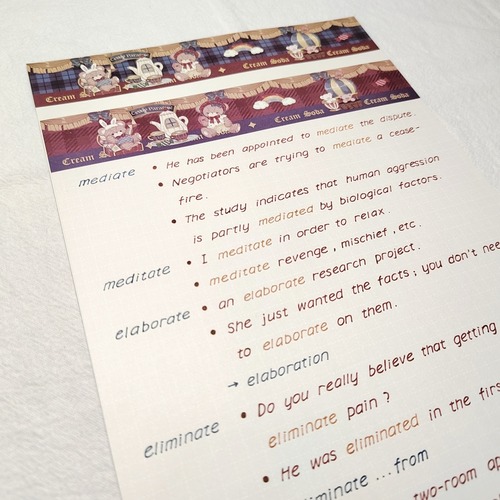 Cream Soda
Cream Soda
Cream Soda
Cream Soda
mediate
• He has been appointed to mediate the dispute.
• Negotiators are trying to mediate a cease-
fire.
• The study indicates that human aggression
is partly mediated by biological factors.
meditate
• I meditate in order to relax.
• meditate revenge, mischief, etc.
elaborate
• an elaborate research project.
• She just wanted the facts; you don't
to elaborate on them.
→ elaboration
eliminate
• Do you really believe that getting
eliminate pain?
• He was eliminated in the
eliminate ... from
two-room